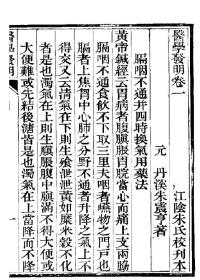 醫學發明卷一
江陰朱氏校刊本
元 丹溪朱震亨著
膈咽不通并四時換氣用藥法
黃帝鍼經云胃病者腹䐜脹胃脘當心而痛上支兩脇
膈咽不通食飲不下取三里夫咽物之門戶也
膈者上焦胃中心肺之分野不通者升降之氣上下不
得交又云清氣在下則生飱泄泄黃如糜米穀不化
者是也濁氣在上則生䐜脹腹脹滿不得
大便難或先結後溏皆是也濁氣在上當降而不降